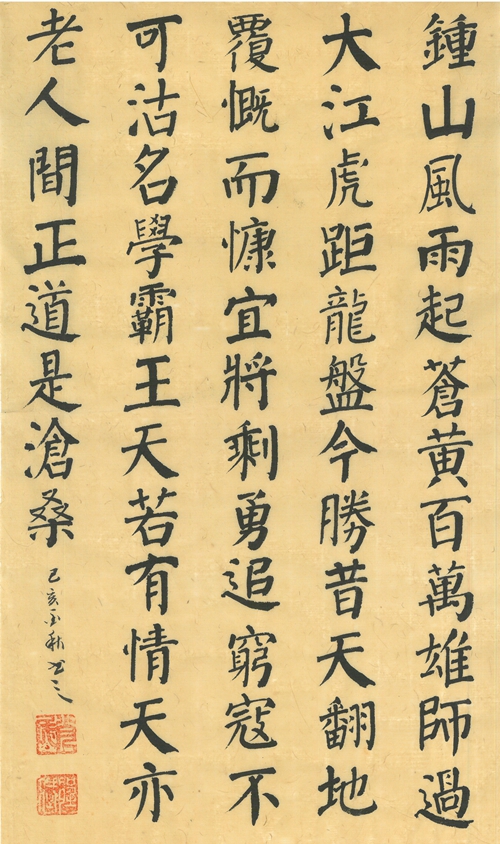 鍾山風雨起蒼黃百萬雄師過
大江虎距龍盤今勝昔天翻地
覆慨而慷宜將剩勇追窮寇不
可沽名學霸王天若有情天亦
老人間正道是滄桑
己亥金秋書之